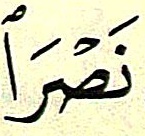 نَصْرَاْ